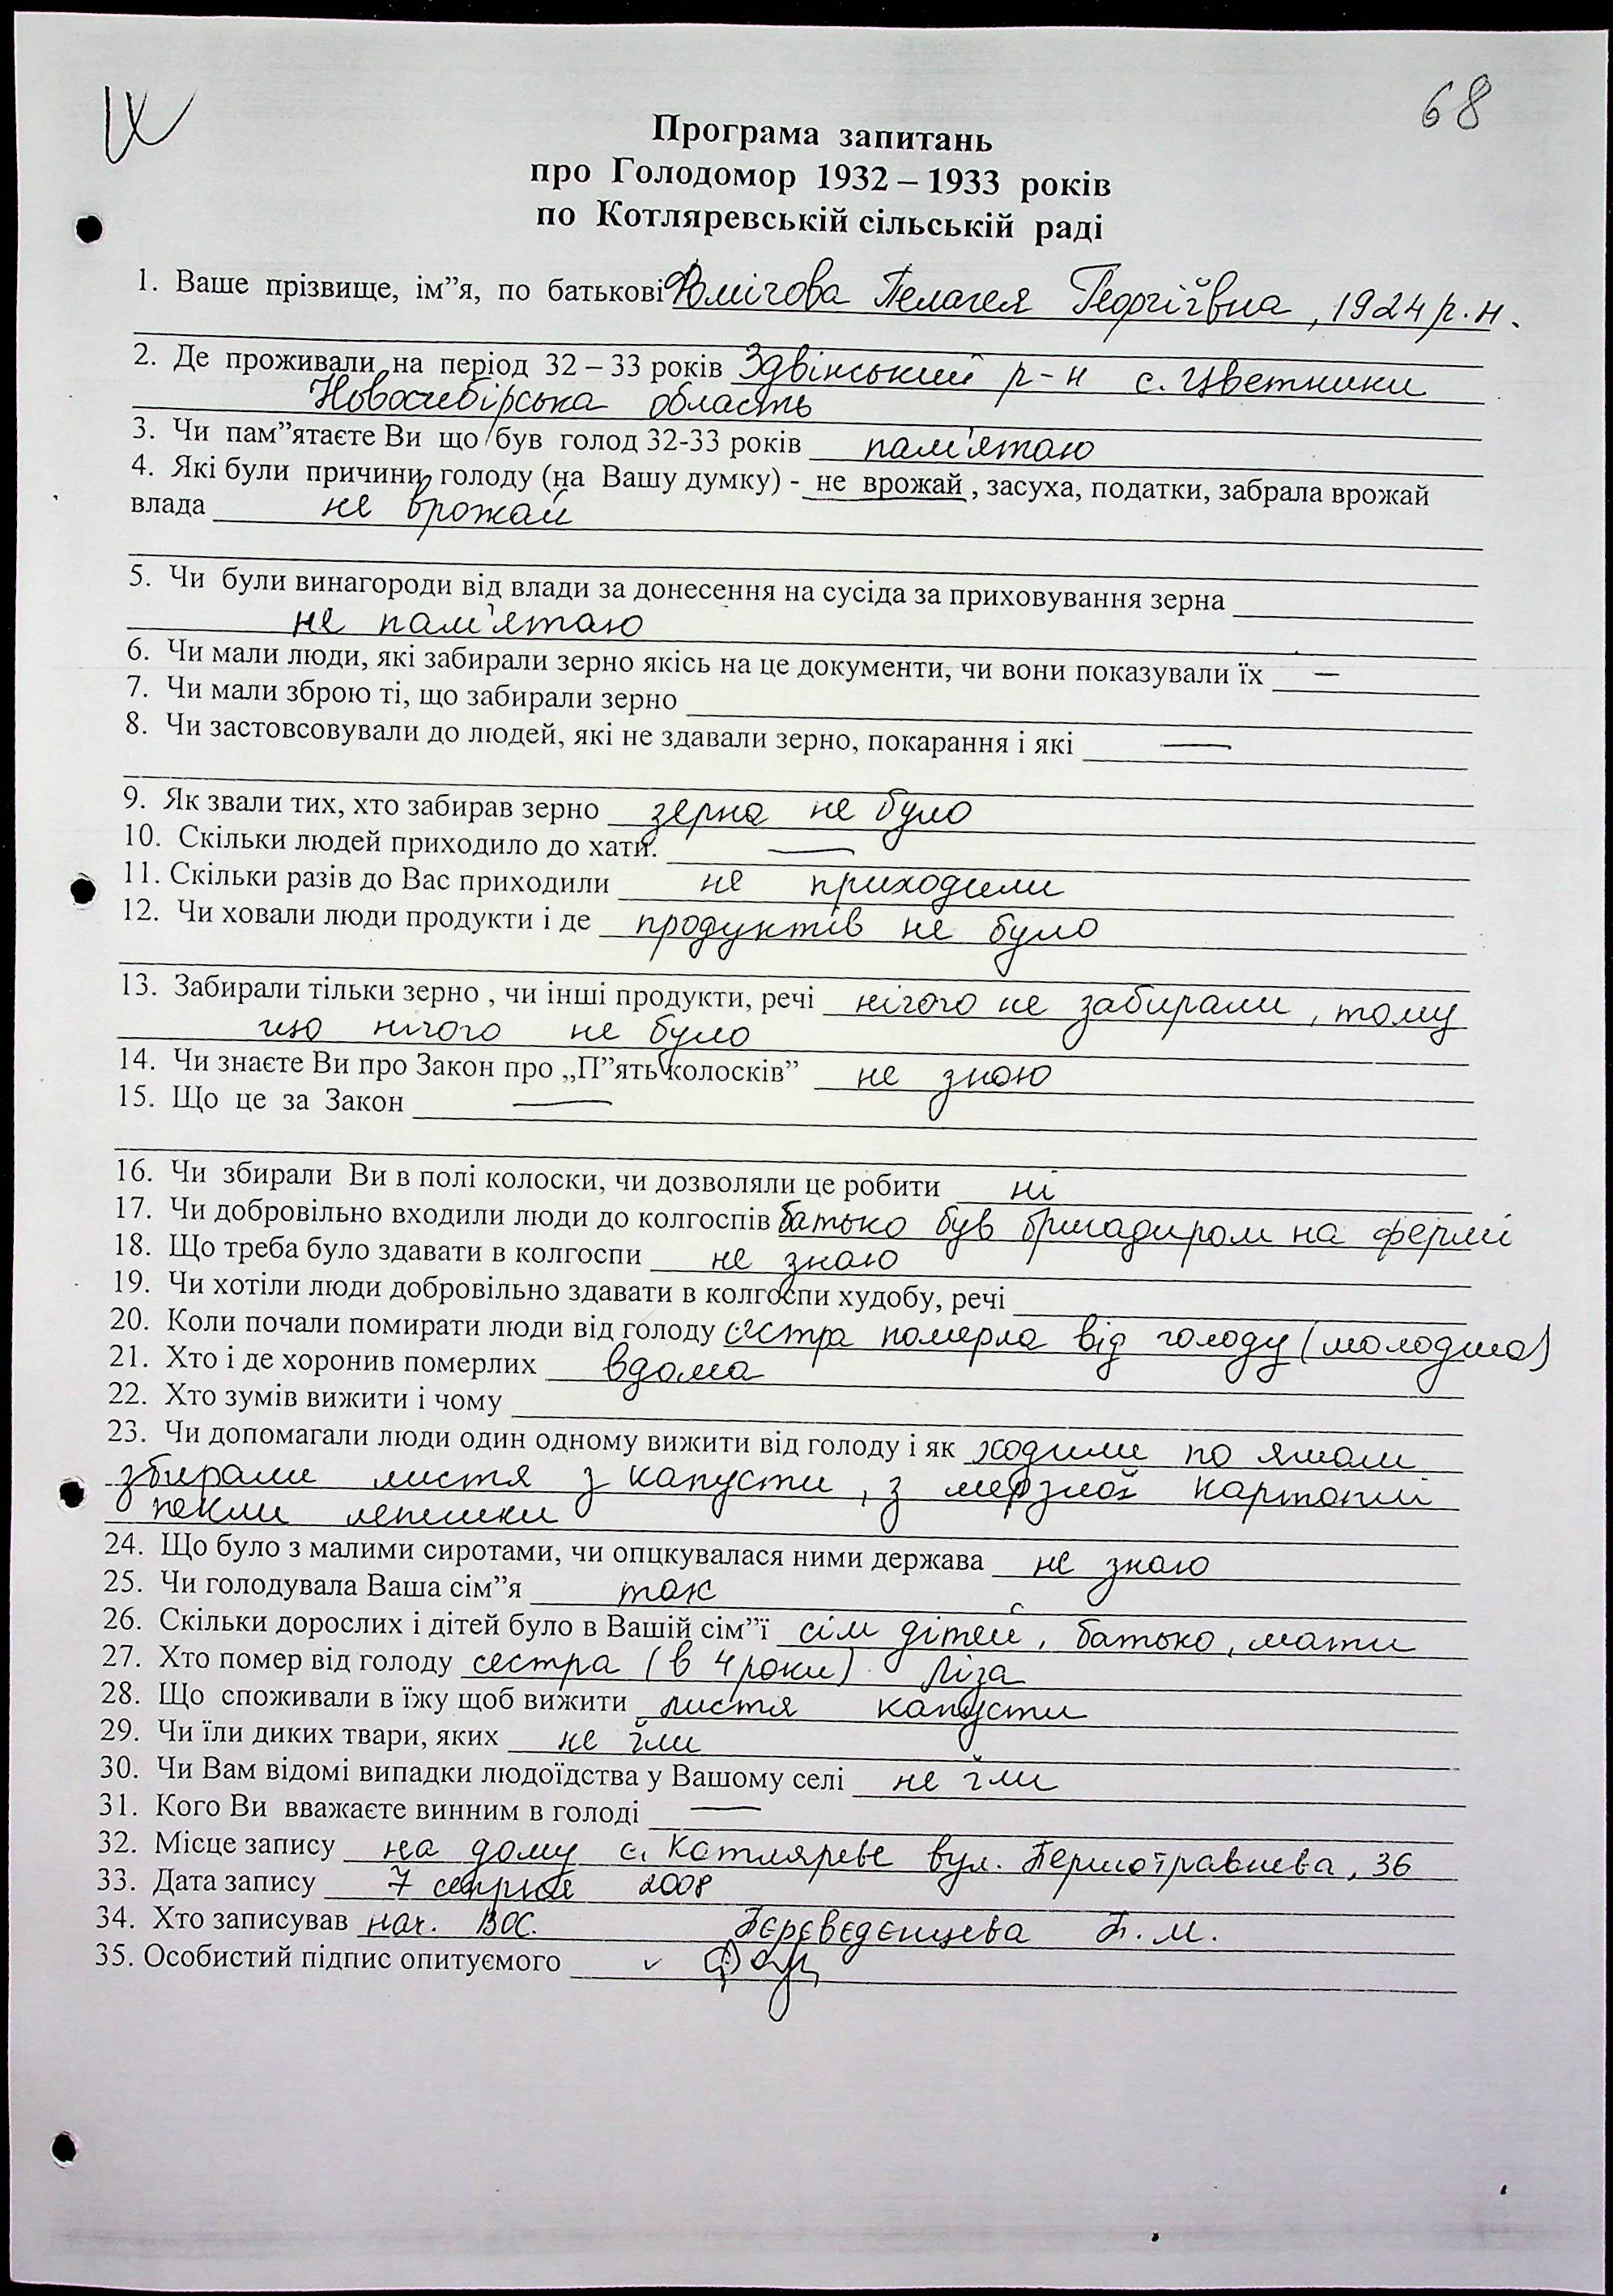 68
Програма запитань
про Голодомор 1932 – 1933 років
по Котляревській сільській раді
1. Ваше прізвище, ім"я, по батькові Пелагея Георгіївна, 1924 р.н.
2. Де проживали на період 32 – 33 років Здвінський р-н с. Цветники
Новосибірська область
3. Чи пам"ятаєте Ви що був голод 32-33 років пам'ятаю
4. Які були причини голоду (на Вашу думку) - не врожай , засуха, податки, забрала врожай
влада не врожай
5. Чи були винагороди від влади за донесення на сусіда за приховування зерна
не пам'ятаю
6. Чи мали люди, які забирали зерно якісь на це документи, чи вони показували їх —
7. Чи мали зброю ті, що забирали зерно
8. Чи застовсовували до людей, які не здавали зерно, покарання і які —
9. Як звали тих, хто забирав зерно зерна не було
10. Скільки людей приходило до хати. —
11. Скільки разів до Вас приходили не приходили
12. Чи ховали люди продукти і де продуктів не було
13. Забирали тільки зерно , чи інші продукти, речі нічого не забирали, тому
що нічого не було
14. Чи знаєте Ви про Закон про „П"ять колосків" не знаю
15. Що це за Закон —
16. Чи збирали Ви в полі колоски, чи дозволяли це робити ні
17. Чи добровільно входили люди до колгоспів батько був бригадиром на фермі
18. Що треба було здавати в колгоспи не знаю
19. Чи хотіли люди добровільно здавати в колгоспи худобу, речі
20. Коли почали помирати люди від голоду сестра померла від голоду (молодша)
21. Хто і де хоронив померлих вдома
22. Хто зумів вижити і чому
23. Чи допомагали люди один одному вижити від голоду і як ходили по ямам
збирали листя з капусти, з мерзлої картоплі
пекли лепешки
24. Що було з малими сиротами, чи опцкувалася ними держава не знаю
25. Чи голодувала Ваша сім"я так
26. Скільки дорослих і дітей було в Вашій сім"ї сім дітей, батько, мати
27. Хто помер від голоду сестра (в 4 роки) Ліза
28. Що споживали в їжу щоб вижити листя капусти
29. Чи їли диких твари, яких не їли
30. Чи Вам відомі випадки людоїдства у Вашому селі не їли
31. Кого Ви вважаєте винним в голоді —
32. Місце запису на дому с. Котляреве вул. Першотравнева, 36
33. Дата запису 7 серпня 2008
34. Хто записував нач. ВОС. Перєвєдєнцева П.М.
35. Особистий підпис опитуємого